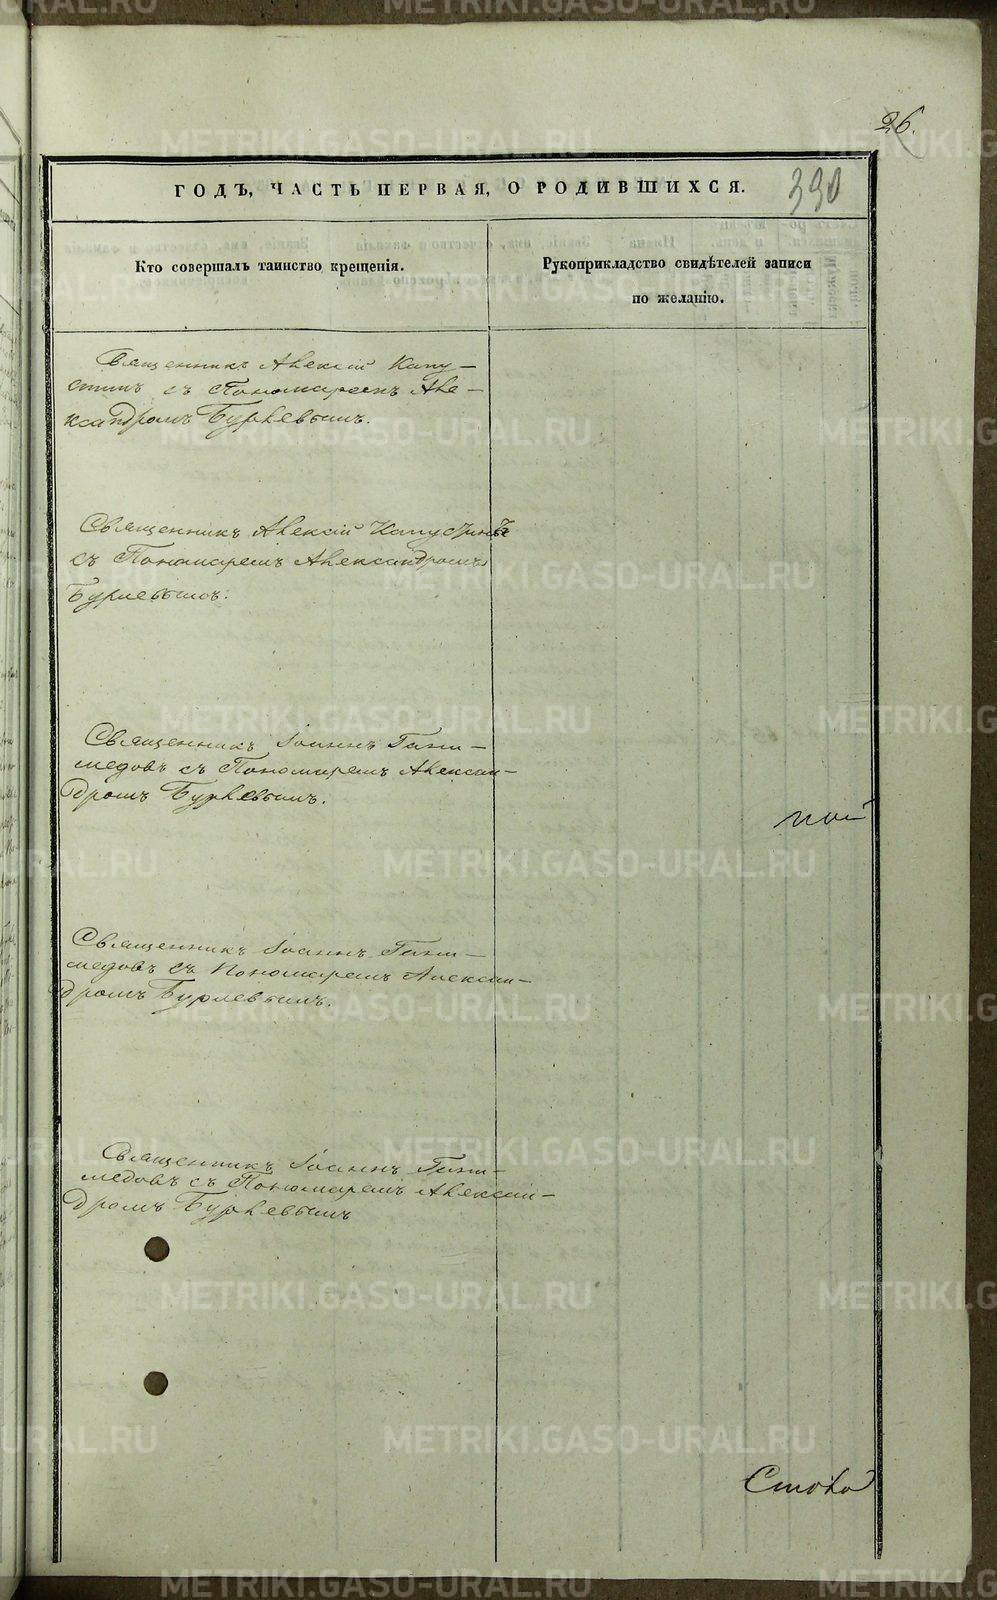 26.
ГОДЪ, ЧАСТЬ ПЕРВАЯ, О РОДИВШИХСЯ.
330
Кто совершалъ таинство крещенія.
Рукоприкладство свидѣтелей записи
по желанію.
Священникъ Алексій Капу-
стинъ съ Пономаремъ Але-
ксандромъ Бурлевымъ.
Священникъ Алексій Капустинъ
съ Пономаремъ Александромъ
Бурлевымъ.
Священникъ Іоаннъ
медовъ съ Пономаремъ Алексан-
дромъ Бурлевымъ.
Священникъ Іоаннъ
медовъ съ Пономаремъ Алексан-
дромъ Бурлевымъ.
Священникъ Іоаннъ
медовъ съ Пономаремъ Алексан-
дромъ Бурлевымъ
METRIKI.GASO-URAL.RU